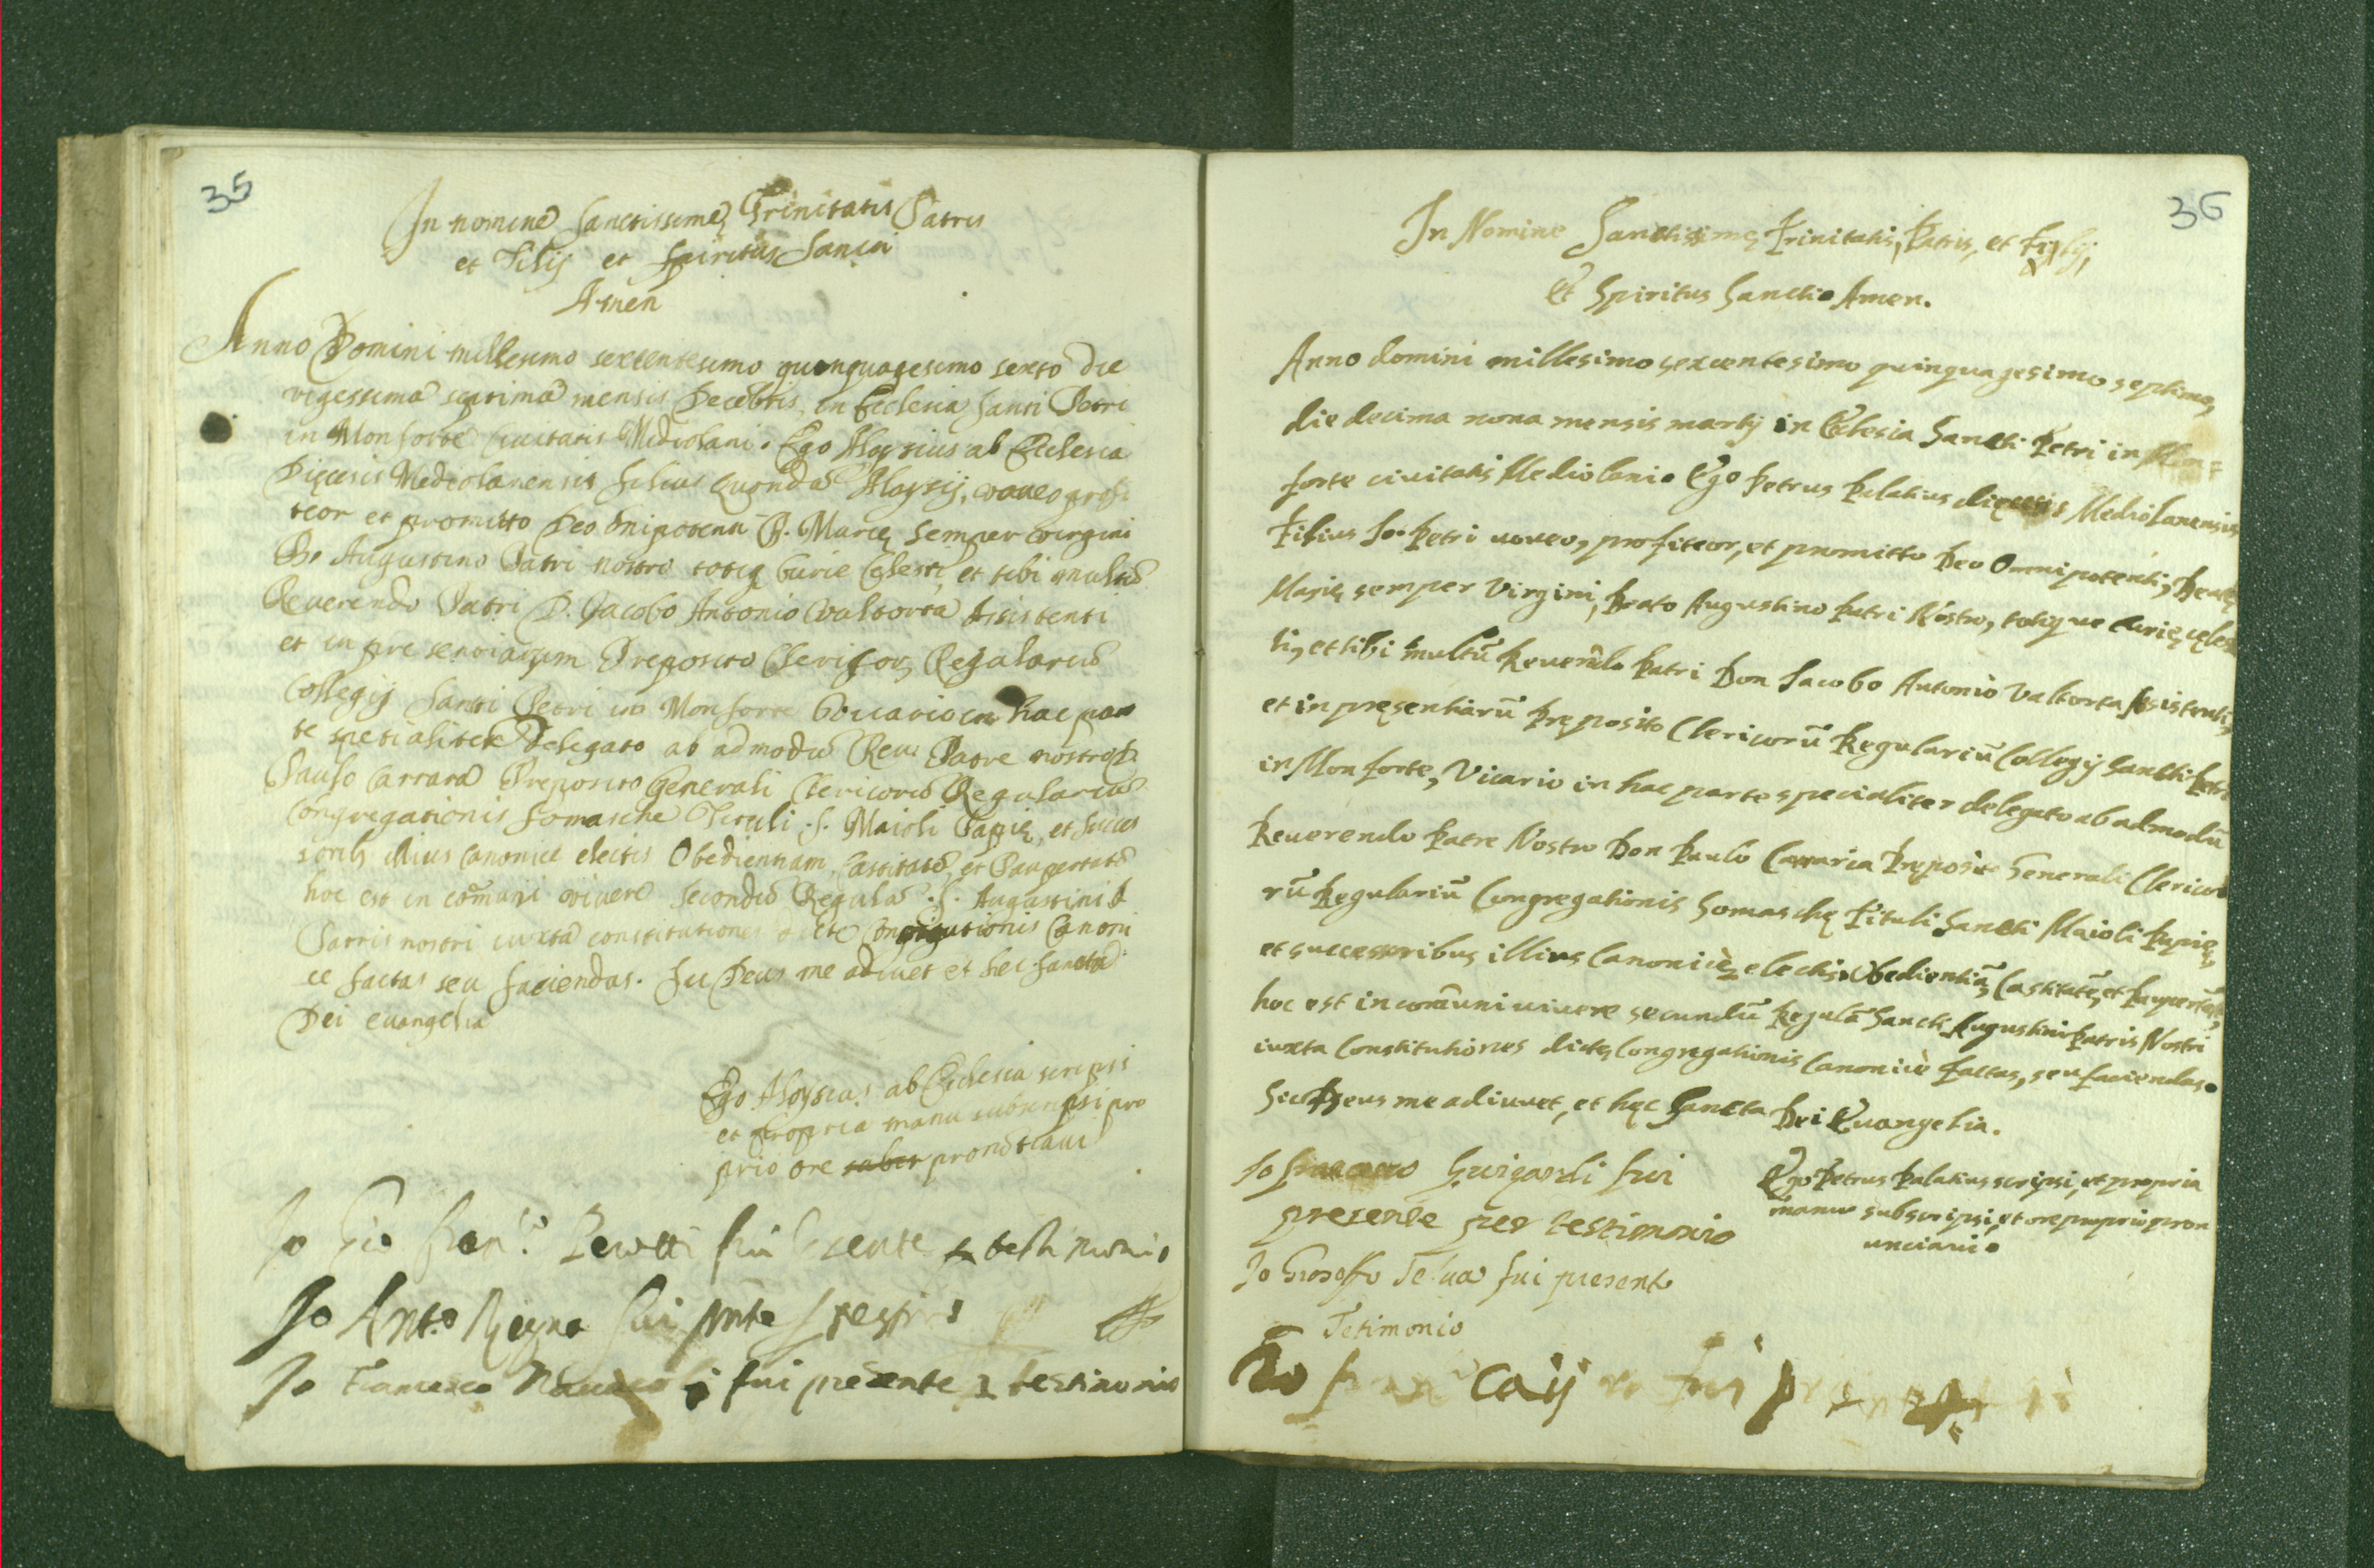 35
In nomine Sanctissimę Trinitatis Patris
et Filij et Spiritus Sancti
Amen
Anno Domini millesimo sexcentesimo quinquagesimo sexto die
vigessima septima mensis Decēbris, in Ecclesia Santi Petri
in Monforte Civitatis Mediolani. Ego Aloysius ab Ecclesia
Dięcesis Mediolanensis filius quondā Aloysij, voveo profi
teor et promitto Deo Onipotenti B. Marię semper virgini
B. Augustino Patri nostro totiq Curie Cęlesti, et tibi multū
Reverendo Patri D. Jacobo Antonio Valtorta Assistenti
et in presentiarum Preposito Clericor Regulariū
Collegij Santi Petri in Monforte Vicario in hac par
te spetialiter Delegato ab admodū Reu. Patre nostro D.
Paulo Carrara Preposito Generali Clericorū Regulariū
Congregationis Somasche Tituli S. Maioli Papię, et succes
soribs illius canonice electis Obedientiam, Castitatē, et Paupertatē
hoc est in cōmuni vivere secondū Regulā S. Augustini
Patris nostri iuxta constitutiones dicte Congregationis Canoni
ce factas seu faciendas. Sic Deus me adiuet et hęc sancta
Dei evangelia
Ego Aloysius ab Ecclesia scripsi
et propria manu subscripsi pro
prio ore subsc pronōtiavi
Io Gio Fran.co fui testimonio
Io Ant.o fui pnte
Io Francesco fui presente testimonio
36
In Nomine Sanctissimę Trinitatis, Patris, et Filij,
Et Spiritus Sancti. Amen.
Anno domini millesimo sexcentesimo quinquagesimo septimo,
die decima nona mensis martij in Ecclesia Sancti Petri in Mon=
forte civitatis Mediolani. Ego Petrus Palatius dięcesis Mediolanensis
Filius Io. Petri voveo, profiteor, et promitto Deo Omnipotenti, Beatę
Marię semper Virgini, Beato Augustino Patri Nostro, totique Curię cęles
ti, et tibi multū Reverēdo Patri Don Iacobo Antonio Valtorta Assistenti,
et in pręsentiarū Pręposito Clericorū Regulariū Collegij Sancti Petri
in Monforte, Vicario in hac parte specialiter delegato ab admodū
Reverendo Patre Nostro Don Paulo Carraria Pręposito Generali Clerico
rū Regulariū Congregationis Somaschę Tituli Sancti Maioli Papię,
et successoribus illius Canonicè electis Obedientiā, Castitatē, et Paupertatē,
hoc est in comūni vivere secundū Regulā Sancti Augustini Patris Nostri
iuxta Constitutiones dictę Congregationis Canonicè factas, seu faciendas.
Sic Deus me adiuvet, et hęc Sancta Dei Evangelia.
Ego Petrus Palatius scripsi, et propria
manu subscripsi, et ore proprio pron
unciavi.
Io fui
presente per testimonio
Io fui presente
Tetimonio
Io fui